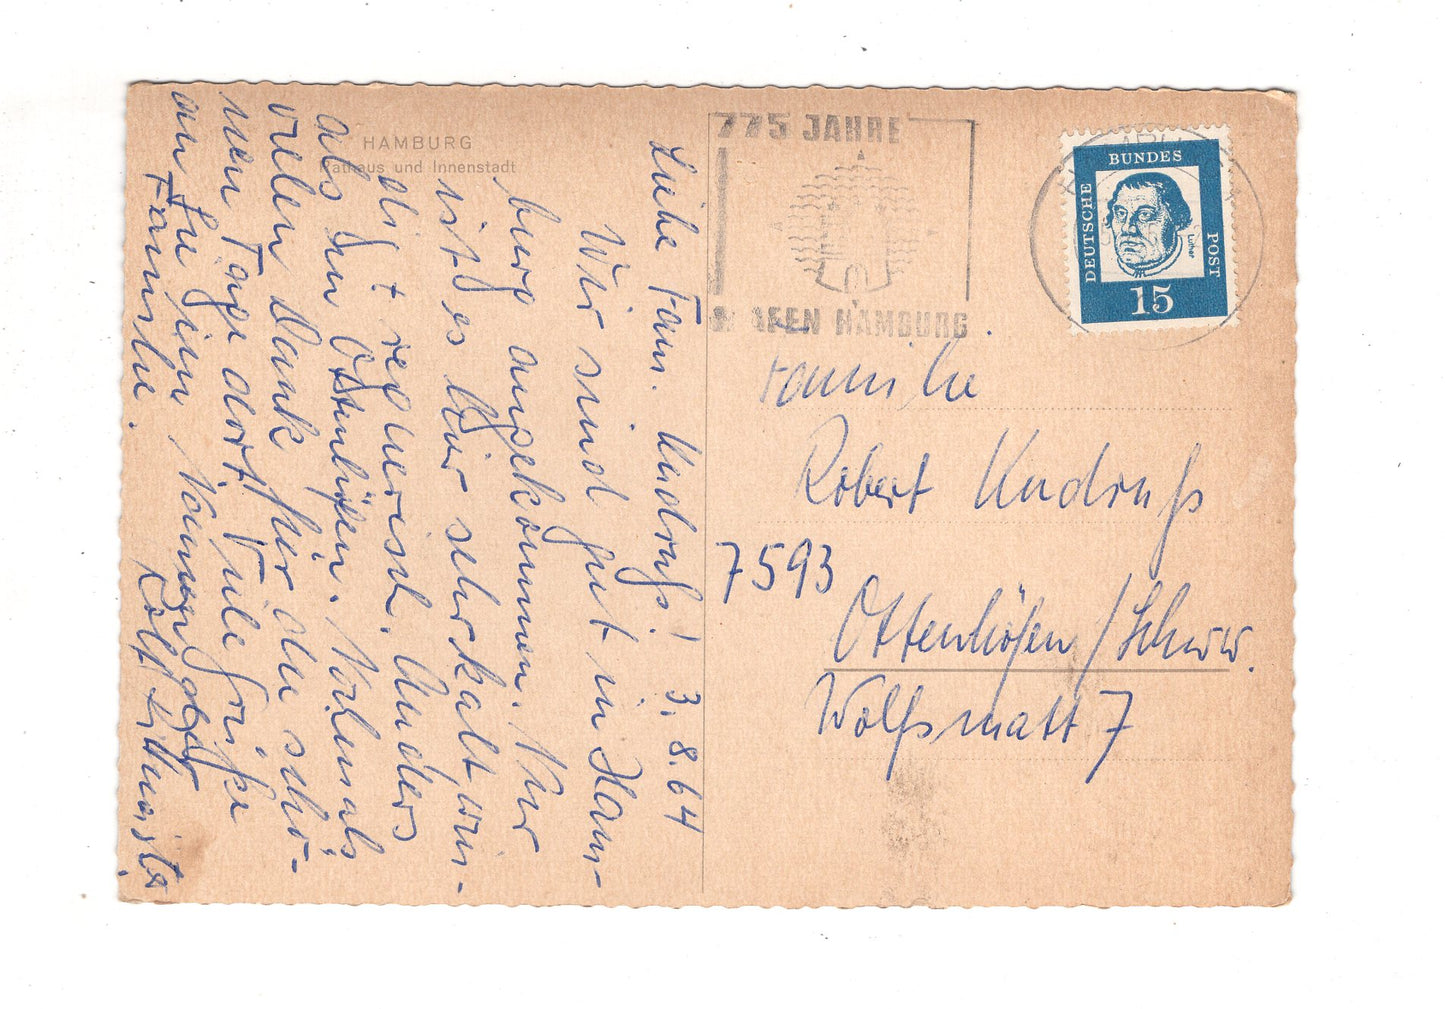 HAMBURG
Rathaus und Innenstadt
Liebe Fam. Kudruß! 3.8.64
Wir sind gut in Ham-
burg angekommen. Nur
ist es hier sehr kalt, win-
dig + regnerisch. Anders
als in Ottenhöfen. Nochmals
vielen Dank für die schö-
nen Tage dort. Viele Grüße
an Sie
Familie.
775 JAHRE
HAFEN HAMBURG
DEUTSCHE
BUNDES
POST
Luther
15
Familie
Robert Kudruß
7593
Ottenhöfen/Schww.
Wolfsmatt 7